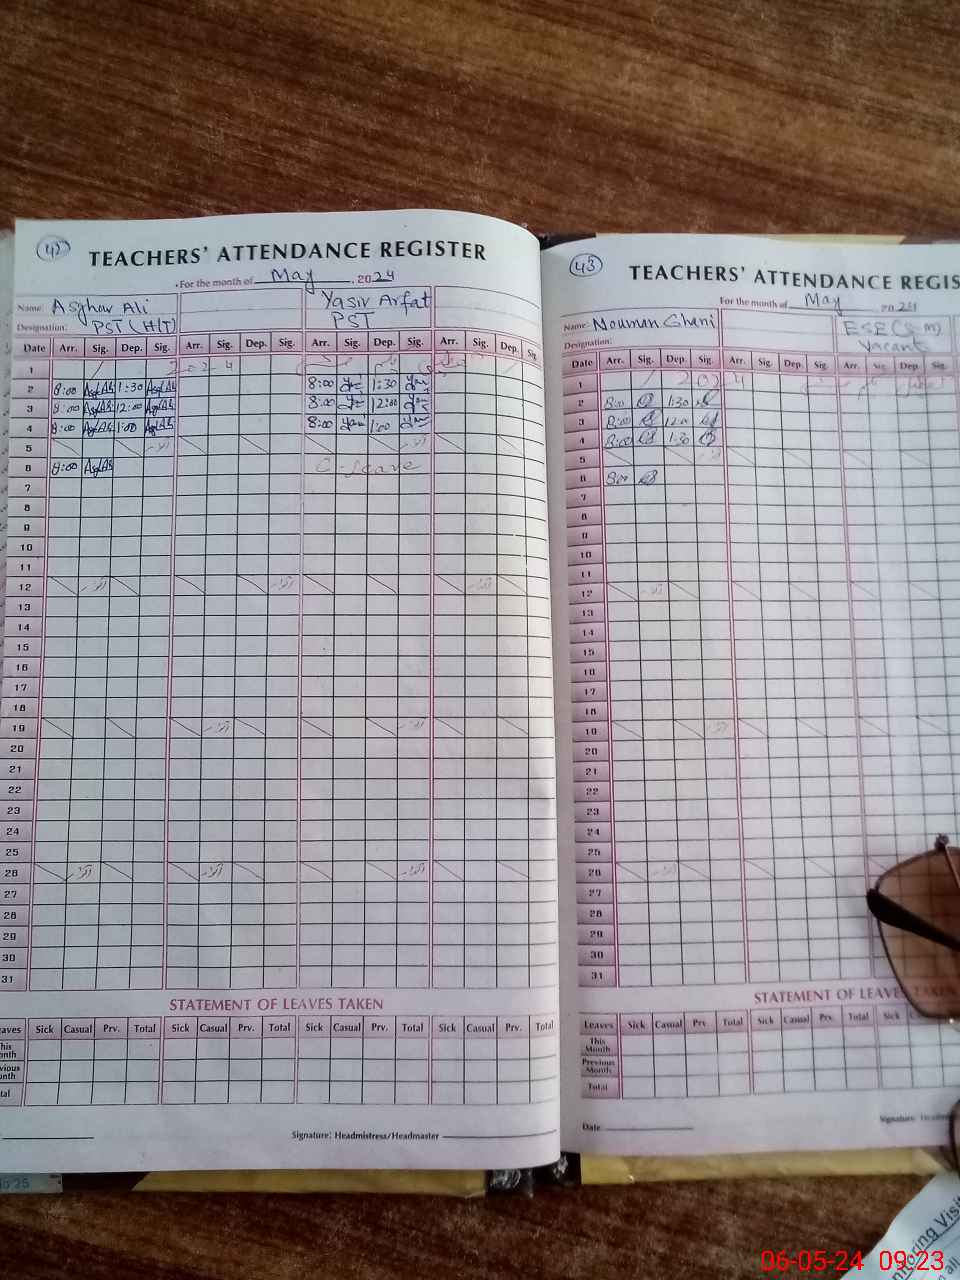 42
TEACHERS' ATTENDANCE REGISTER
For the month of May, 2024
Name: Asghar Ali
Yasir Arfat
Designation: PST (H/T)
PST
Date Arr. Sig. Dep. Sig. Arr. Sig. Dep. Sig. Arr. Sig. Dep. Sig. Arr. Sig. Dep. Sig.
1 2024
2 8:00 1:30 8:00 1:30
3 8:00 12:00 8:00 12:00
4 8:00 1:00 8:00 1:00
5
6 8:00 C-leave
7
8
9
10
11
12
13
14
15
16
17
18
19
20
21
22
23
24
25
26
27
28
29
30
31
STATEMENT OF LEAVES TAKEN
eaves Sick Casual Prv. Total Sick Casual Prv. Total Sick Casual Prv. Total Sick Casual Prv. Total
This
onth
vious
onth
tal
Signature: Headmistress/Headmaster
43
TEACHERS' ATTENDANCE REGIS
For the month of May 2024
Name: Nouman Ghani
Designation:
Vacant
Date Arr. Sig. Dep. Sig. Arr. Sig. Dep. Sig. Arr. Sig. Dep. Sig.
1 2024
2 8:00 1:30
3 8:00 12:00
4 8:00 1:30
5
6 8:00
7
8
9
10
11
12
13
14
15
16
17
18
19
20
21
22
23
24
25
26
27
28
29
30
31
STATEMENT OF LEAVES TAKEN
Leaves Sick Casual Prv. Total Sick Casual Prv. Total Sick
This
Month
Previous
Month
Total
Date
Signature:
06-05-24 09:23